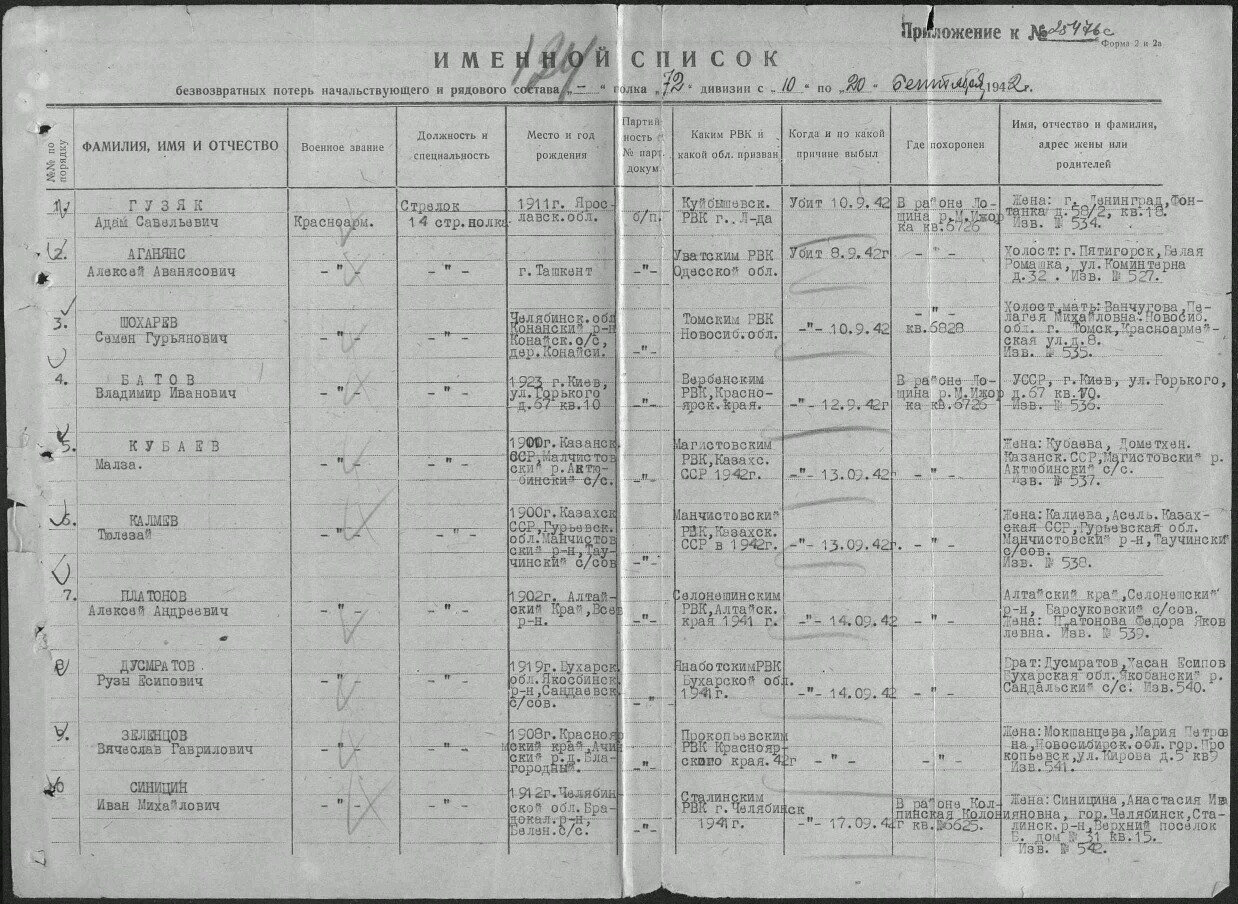 Приложение к № 25476с
Форма 2 и 2а
124
ИМЕННОЙ СПИСОК
безвозвратных потерь начальствующего и рядового состава „ — “ полка „72“ дивизии с „10“ по „20“ Сентября 1942 г.
№№ по порядку
ФАМИЛИЯ, ИМЯ И ОТЧЕСТВО
Военное звание
Должность и специальность
Место и год рождения
Партийность № парт. докум.
Каким РВК и какой обл. призван
Когда и по какой причине выбыл
Где похоронен
Имя, отчество и фамилия, адрес жены или родителей
1.
ГУЗЯК
Адам Савельевич
Красноарм.
Стрелок
14 стр. полка
1911г. Ярос-
лавск.обл.
б/п.
Куйбышевск.
РВК г. Л-да
Убит 10.9.42
В районе Ло-
щина р.М.Ижор
ка кв.6726
Жена: г. Ленинград,Фон-
танка д.58/2, кв.18.
Изв. № 534.
2.
АГАНЯНС
Алексей Аванясович
-"-
-"-
г.Ташкент
-"-
Уватским РВК
Одесской обл.
Убит 8.9.42г
-"-
Холост:г.Пятигорск,Белая
Ромашка, ул.Коминтерна
д.32 . Изв. № 527.
3.
ШОХАРЕВ
Семен Гурьянович
-"-
-"-
Челябинск.обл
Конанский р-н
Конайск.о/с,
дер.Конайси.
-"-
Томским РВК
Новосиб.обл.
-"- 10.9.42
-"-
кв.6828
Холост,мать:Ванчугова,Пе-
лагея Михайловна:Новосиб.
обл. г. Томск,Красноармей-
ская ул.д.8.
Изв. № 535.
4.
БАТОВ
Владимир Иванович
-"-
-"-
1923 г.Киев,
ул.Горького
д.67 кв.10
-"-
Вербенским
РВК,Красно-
ярск.края.
-"- 12.9.42г
В районе Ло-
щина р.М.Ижор
ка кв.6726
УССР, г.Киев, ул.Горького,
д.67 кв.10.
Изв. № 536.
5.
КУБАЕВ
Малза.
-"-
-"-
1900г.Казанск.
ССР,Малчистов
ский р.Актю-
бински с/с.
-"-
Магистовским
РВК,Казахс.
ССР 1942г.
-"- 13.09.42г
-"-
Жена:Кубаева, Дометхен.
Казанск.ССР,Магистовский р.
Актюбински с/с.
Изв. № 537.
6.
КАЛМЕВ
Тюлезай
-"-
-"-
1900г.Казахск
ССР,Гурьевск.
обл.Манчистов
ский р-н,Тау-
чинский с/сов
-"-
Манчистовски
РВК,Казахск.
ССР в 1942г.
-"- 13.09.42г.
-"-
Жена:Калиева,Асель.Казах-
ская ССР,Гурьевская обл.
Манчистовский р-н,Таучински
с/сов.
Изв. № 538.
7.
ПЛАТОНОВ
Алексей Андреевич
-"-
-"-
1902г. Алтай-
ский Край,Всев
р-н.
-"-
Селонешинским
РВК,Алтайск.
края 1941 г.
-"- 14.09.42
-"-
Алтайский край,Селонешский
р-н, Барсуковский с/сов.
Жена: Платонова Федора Яков
левна. Изв. № 539.
8.
ДУСМРАТОВ
Рузы Есипович
-"-
-"-
1919г.Бухарск.
обл.Якосбинск.
р-н,Сандаевск.
с/сов.
-"-
ЯнаботскимРВК
Бухарской обл.
1941г.
-"- 14.09.42
-"-
Брат:Дусмратов,Хасан Есипов
Бухарская обл.Якобански р.
Сандальский с/с. Изв.540.
9.
ЗЕЛЕНЦОВ
Вячеслав Гаврилович
-"-
-"-
1908г.Краснояр
ский край,Ачин
ский р.д.Бла-
городный.
-"-
Прокопьевским
РВК Краснояр-
ского края.42г
-"-
-"-
Жена:Мокшанцева,Мария Петров
на,Новосибирск.обл.гор.Про
копьевск,ул.Кирова д.5 кв9
Изв.541.
10
СИНИЦИН
Иван Михайлович
-"-
-"-
1912г.Челябин-
ской обл.Бра-
докал.р-н,
Белен.с/с.
-"-
Сталинским
РВК г.Челябинск
1941г.
-"- 17.09.42г
В районе Кол-
пинская Колония
кв.№6625.
Жена:Синицина,Анастасия Ива
новна, гор.Челябинск,Ста-
линск.р-н,Верхний поселок
Б. дом № 31 кв.15.
Изв. № 542.